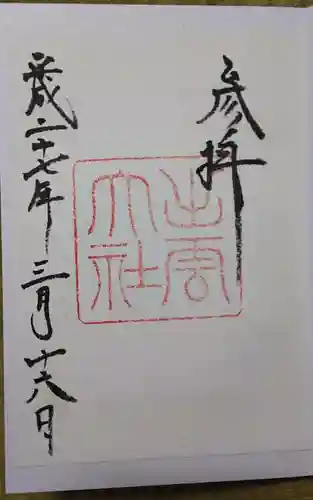 参拝
出雲大社
平成二十七年三月十八日